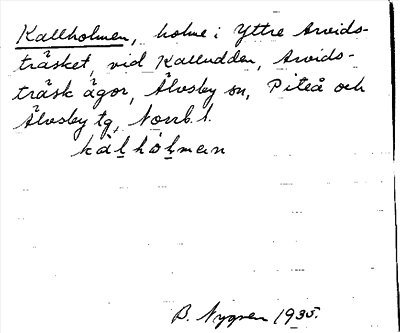 Kallholmen, holme i Yttre Arvids-
träsket, vid Kalludden, Arvids-
träsk ägor, Älvsby sn, Piteå och
Älvsby tg, Norrb. l.
kal̲hòl̲men
B. Nygren 1935.